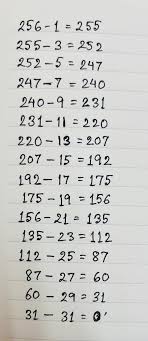 256 - 1 = 255
255 - 3 = 252
252 - 5 = 247
247 - 7 = 240
240 - 9 = 231
231 - 11 = 220
220 - 13 = 207
207 - 15 = 192
192 - 17 = 175
175 - 19 = 156
156 - 21 = 135
135 - 23 = 112
112 - 25 = 87
87 - 27 = 60
60 - 29 = 31
31 - 31 = 0